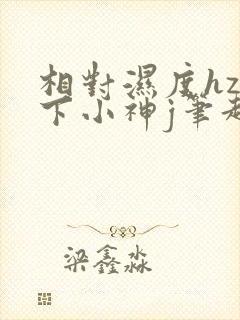 相對濕度hz
下小神j筆趣
梁鑫淼